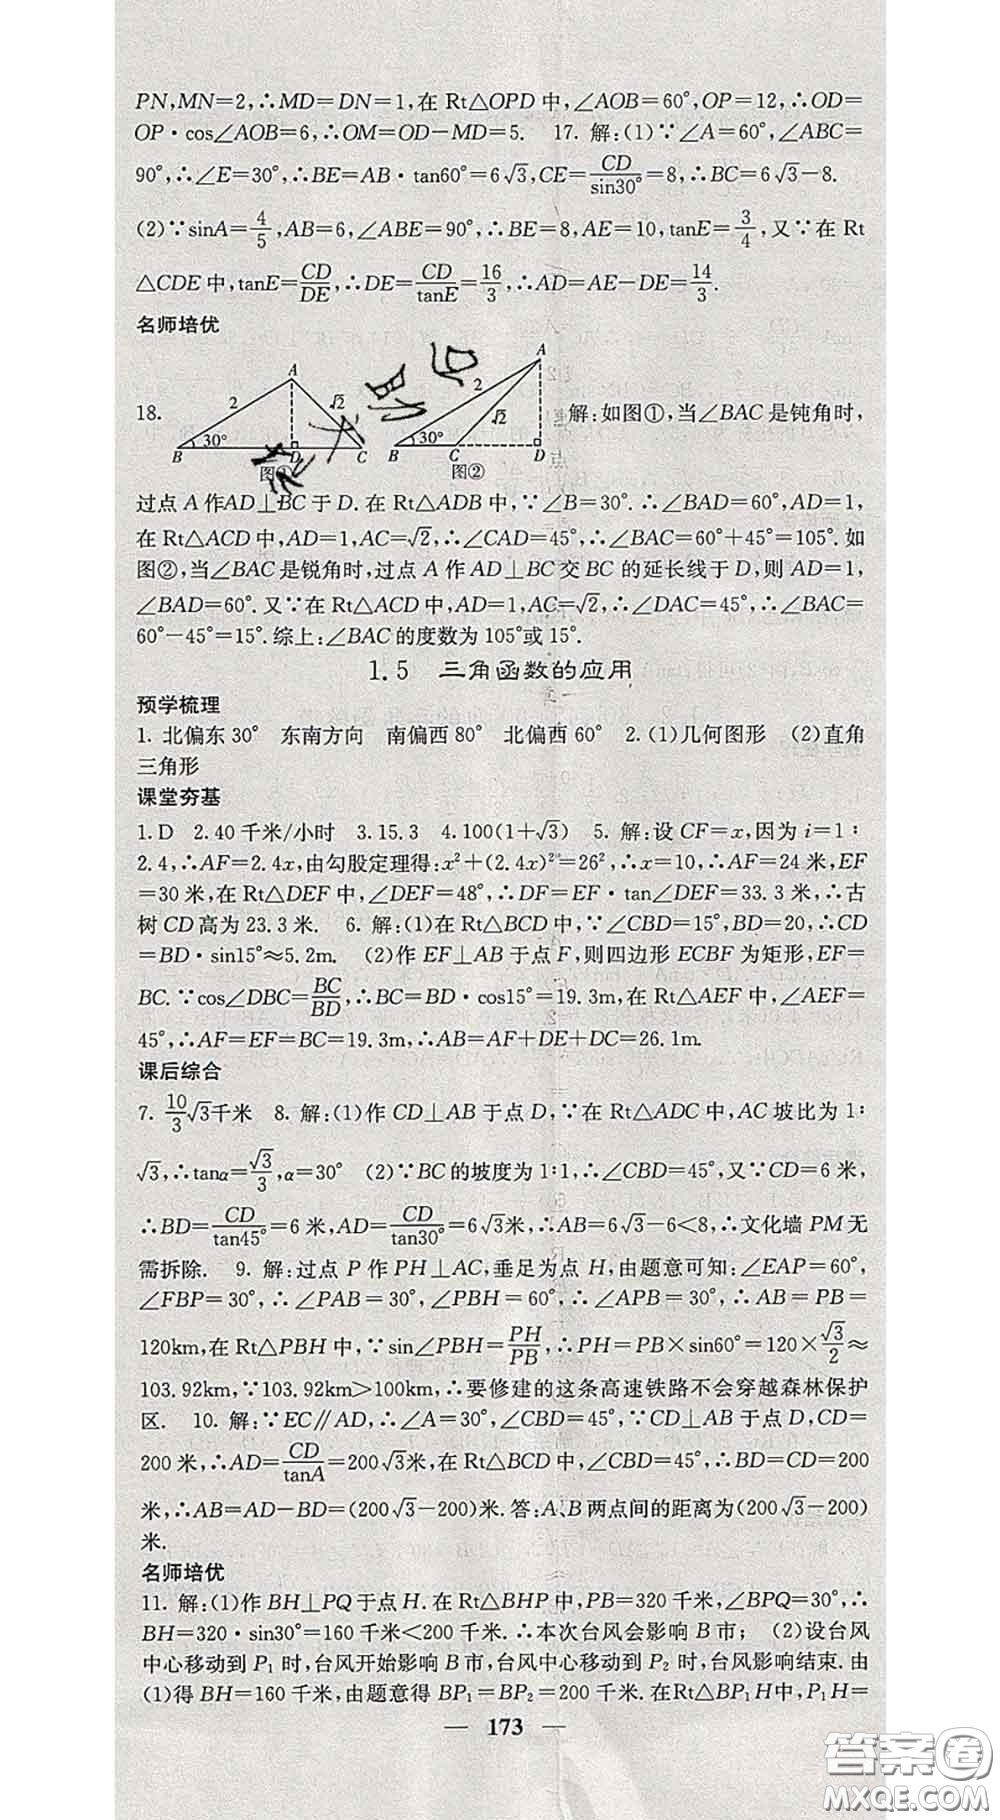 PN,MN=2,∴MD=DN=1,在 Rt△OPD 中,∠AOB=60°,OP=12,∴OD=
OP·cos∠AOB=6,∴OM=OD-MD=5. 17. 解:(1)∵∠A=60°,∠ABC=
90°,∴∠E=30°,∴BE=AB·tan60°=6√3,CE=CD/sin30°=8,∴BC=6√3-8.
(2)∵sinA=4/5,AB=6,∠ABE=90°,∴BE=8,AE=10,tanE=3/4,又∵在 Rt
△CDE 中,tanE=CD/DE,∴DE=CD/tanE=16/3,∴AD=AE-DE=14/3.
名师培优
18. 解:如图①,当∠BAC 是钝角时,
A 2 √2 30° B D C 图①
A 2 √2 30° B C D 图②
过点 A 作AD⊥BC 于 D. 在 Rt△ADB 中,∵∠B=30°.∴∠BAD=60°,AD=1,
在 Rt△ACD 中,AD=1,AC=√2,∴∠CAD=45°,∴∠BAC=60°+45°=105°. 如
图②,当∠BAC 是锐角时,过点 A 作 AD⊥BC 交 BC 的延长线于 D,则 AD=1,
∠BAD=60°. 又∵在 Rt△ACD 中,AD=1,AC=√2,∴∠DAC=45°,∴∠BAC=
60°-45°=15°. 综上:∠BAC 的度数为 105°或 15°.
1.5 三角函数的应用
预学梳理
1. 北偏东 30° 东南方向 南偏西 80° 北偏西 60° 2. (1)几何图形 (2)直角
三角形
课堂夯基
1. D 2. 40 千米/小时 3. 15. 3 4. 100(1+√3) 5. 解:设 CF=x,因为 i=1∶
2. 4,∴AF=2. 4x,由勾股定理得:x²+(2. 4x)²=26²,∴x=10,∴AF=24 米,EF
=30 米,在 Rt△DEF 中,∠DEF=48°,∴DF=EF·tan∠DEF=33. 3 米,∴古
树 CD 高为 23. 3 米. 6. 解:(1)在 Rt△BCD 中,∵∠CBD=15°,BD=20,∴CD
=BD·sin15°≈5. 2m. (2)作 EF⊥AB 于点 F,则四边形 ECBF 为矩形,EF=
BC. ∵cos∠DBC=BC/BD,∴BC=BD·cos15°=19. 3m,在 Rt△AEF 中,∠AEF=
45°,∴AF=EF=BC=19. 3m,∴AB=AF+DE+DC=26. 1m.
课后综合
7. 10/3√3千米 8. 解:(1)作 CD⊥AB 于点 D,∵在 Rt△ADC 中,AC 坡比为 1∶
√3,∴tanα=√3/3,α=30° (2)∵BC 的坡度为 1∶1,∴∠CBD=45°,又∵CD=6 米,
∴BD=CD/tan45°=6 米,AD=CD/tan30°=6√3米,∴AB=6√3-6<8,∴文化墙 PM 无
需拆除. 9. 解:过点 P 作 PH⊥AC,垂足为点 H,由题意可知:∠EAP=60°,
∠FBP=30°,∴∠PAB=30°,∠PBH=60°,∴∠APB=30°,∴AB=PB=
120km,在 Rt△PBH 中,∵sin∠PBH=PH/PB,∴PH=PB×sin60°=120×√3/2≈
103. 92km,∵103. 92km>100km,∴要修建的这条高速铁路不会穿越森林保护
区. 10. 解:∵EC∥AD,∴∠A=30°,∠CBD=45°,∵CD⊥AB 于点 D,CD=
200 米,∴AD=CD/tanA=200√3米,在 Rt△BCD 中,∠CBD=45°,∴BD=CD=200
米,∴AB=AD-BD=(200√3-200)米. 答:A、B 两点间的距离为(200√3-200)
米.
名师培优
11. 解:(1)作 BH⊥PQ 于点 H. 在 Rt△BHP 中,PB=320 千米,∠BPQ=30°,∴
BH=320·sin30°=160 千米<200 千米. ∴本次台风会影响 B 市; (2)设台风
中心移动到 P₁ 时,台风开始影响 B 市,台风中心移动到 P₂ 时,台风影响结束. 由
(1)得 BH=160 千米,由题意得 BP₁=BP₂=200 千米. 在Rt△BP₁H中,P₁H=
— 173 —
答案圈
MXQE.COM